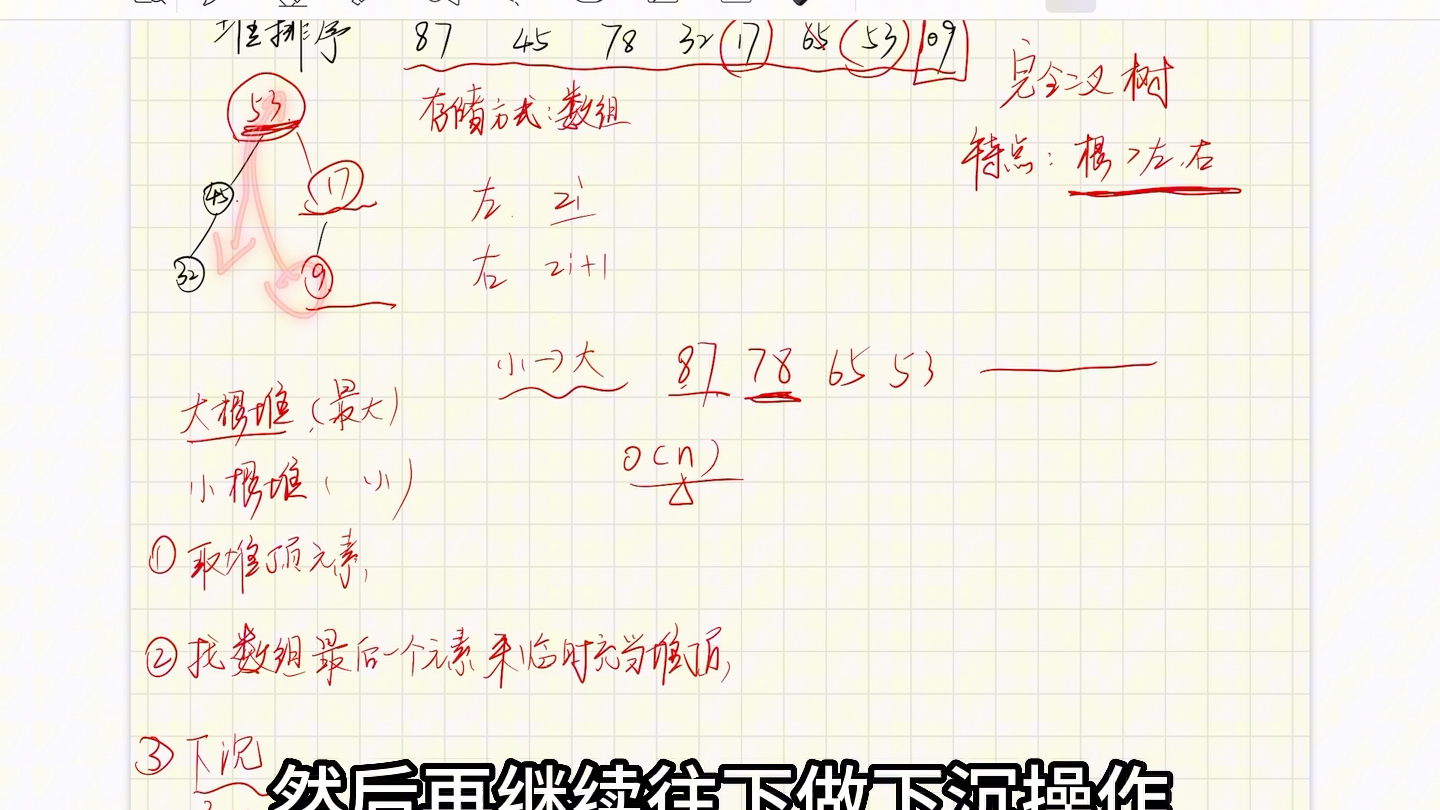 堆排序 87 45 78 32 17 65 53 09
完全二叉树
53
存储方式:数组
特点: 根>左.右
45 17
左. 2i
32 9
右 2i+1
小→大 87 78 65 53
大根堆(最大)
O(n)
小根堆( 小)
① 取堆顶元素,
② 找数组最后一个元素来临时充当堆顶,
③ 下沉
然后再继续往下做下沉操作